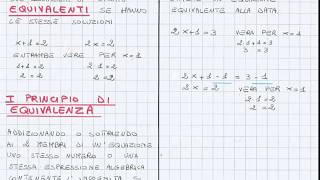 EQUIVALENTI SE HANNO
LE STESSE SOLUZIONI
x+1=2 2x=2
ENTRAMBE VERE PER x=1
1+1=2 2·1=2
2=2 2=2
I PRINCIPIO DI
EQUIVALENZA
ADDIZIONANDO O SOTTRAENDO
AI 2 MEMBRI DI UN'EQUAZIONE
UNO STESSO NUMERO O UNA
STESSA ESPRESSIONE ALGEBRICA
CONTENENTE L'INCOGNITA SI
EQUIVALENTE ALLA DATA.
2x+1=3 VERA PER x=1
2·1+1=3
2+1=3
3=3
2x+1-1=3-1
2x=2 VERA PER x=1
2·1=2
2=2